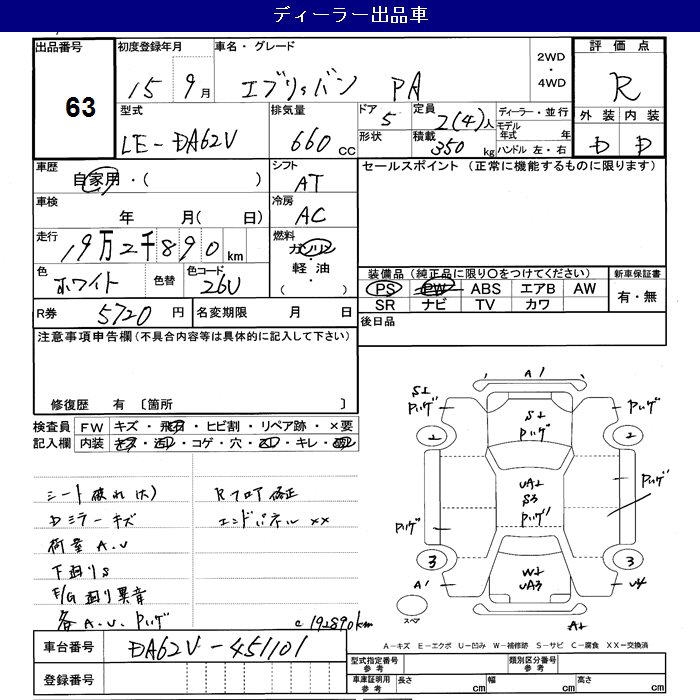 ディーラー出品車
出品番号 63
初度登録年月 15 9月
車名・グレード エブリィバン PA
2WD ・ 4WD
評価点 R
型式 LE-DA62V
排気量 660 cc
ドア 5
形状
定員 2(4)人
積載 350 kg
ディーラー・並行
モデル年式 年
ハンドル 左・右
外装 D 内装 D
車歴 自家用・( )
シフト AT
セールスポイント (正常に機能するものに限ります)
車検 年 月( 日)
冷房 AC
走行 19万2千890km
燃料 ガソリン・軽油・( )
色 ホワイト 色替
色コード 26U
装備品 (純正品に限り○をつけてください)
新車保証書 有・無
PS PW ABS エアB AW
SR ナビ TV カワ
R券 5720円
名変期限 月 日
後日品
注意事項申告欄(不具合内容等は具体的に記入して下さい)
修復歴 有 〔箇所 〕
検査員記入欄
FW キズ・飛石・ヒビ割・リペア跡・×要
内装 キズ・汚れ・コゲ・穴・・キレ・
シート破れ(大) Rフロア修正
Dミラーキズ エンドパネル××
荷室A.U
下廻りS
E/G廻り異音
各A.U.Pハゲ
c 192890km
A1
S1 Pハゲ
S1 Pハゲ
Pハゲ
2 2
UA1 S3 Pハゲ
Pハゲ
Pハゲ
3 3
A1
W1 UA3
U4
A1
スペア
A-キズ E-エクボ U-凹み W-補修跡 S-サビ C-腐食 XX-交換済
車台番号 DA62V-451101
型式指定番号 参考
類別区分番号 参考
登録番号
車庫証明用 参考
長さ cm 幅 cm 高さ cm